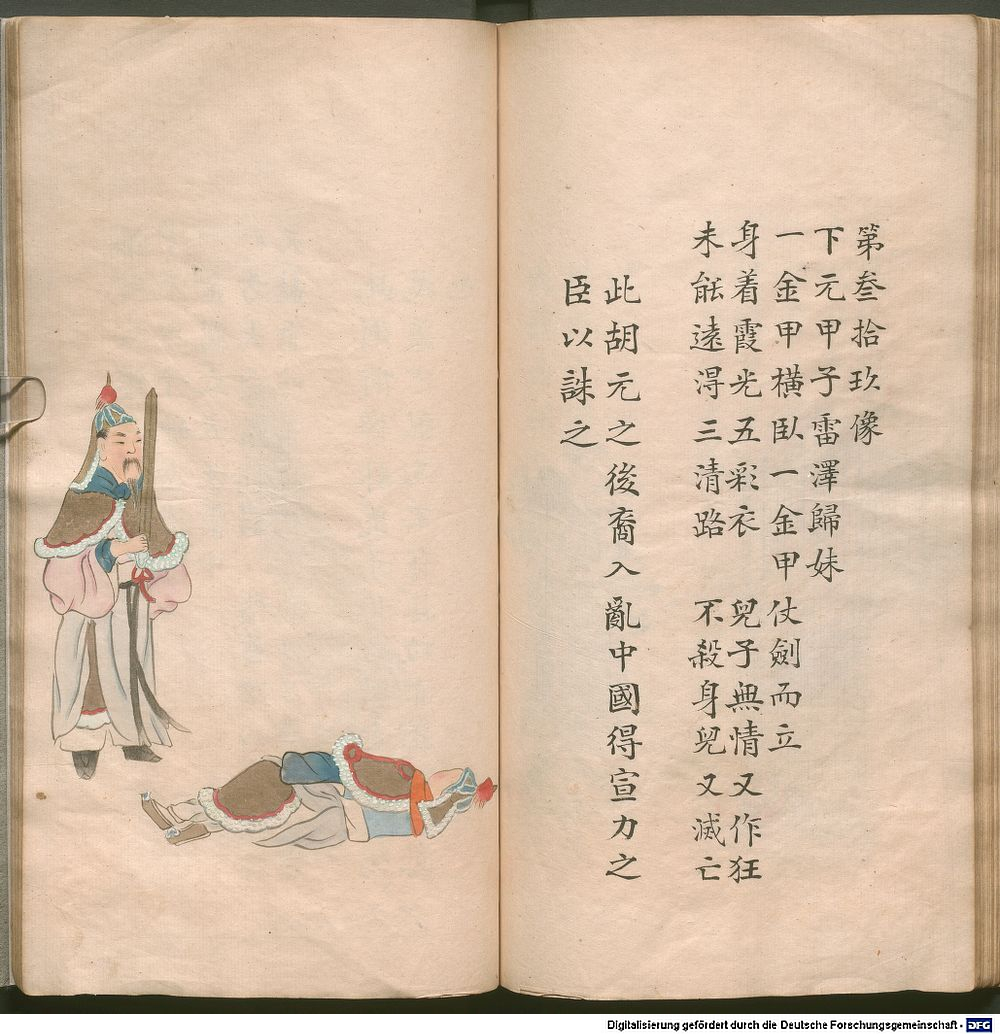 第叁拾玖像
下元甲子雷澤歸妹
一金甲橫臥一金甲仗劍而立
身着霞光五彩衣 兒子無情又作狂
未能遠得三清路 不殺身兒又滅亡
此胡元之後裔入亂中國得宣力之
臣以誅之
Digitalisierung gefördert durch die Deutsche Forschungsgemeinschaft - DFG